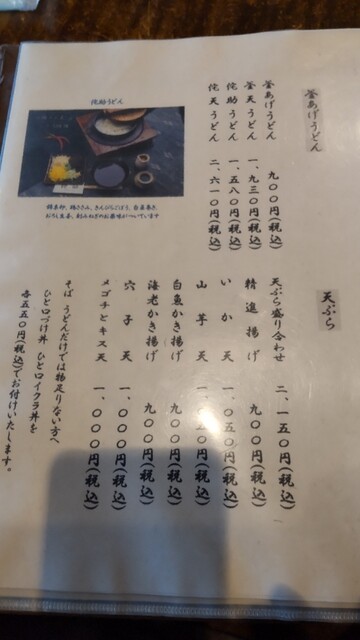 釜あげうどん
釜あげうどん 九〇〇円(税込)
釜天うどん 一、九三〇円(税込)
侘助うどん 一、五八〇円(税込)
侘天うどん 二、六一〇円(税込)
侘助うどん
錦糸卵、鶏ささみ、きんぴらごぼう、白菜巻き、
おろし生姜、刻みねぎのお薬味がついています
天ぷら
天ぷら盛り合わせ 二、一五〇円(税込)
精進揚げ 九〇〇円(税込)
いか天 一、〇五〇円(税込)
山芋天 一、〇五〇円(税込)
白魚かき揚げ 九〇〇円(税込)
海老かき揚げ 九〇〇円(税込)
穴子天 一、〇〇〇円(税込)
メゴチとキス天 一、〇〇〇円(税込)
そば うどんだけでは物足りない方へ
ひと口づけ丼 ひと口イクラ丼を
各五五〇円(税込)でお付けいたします。